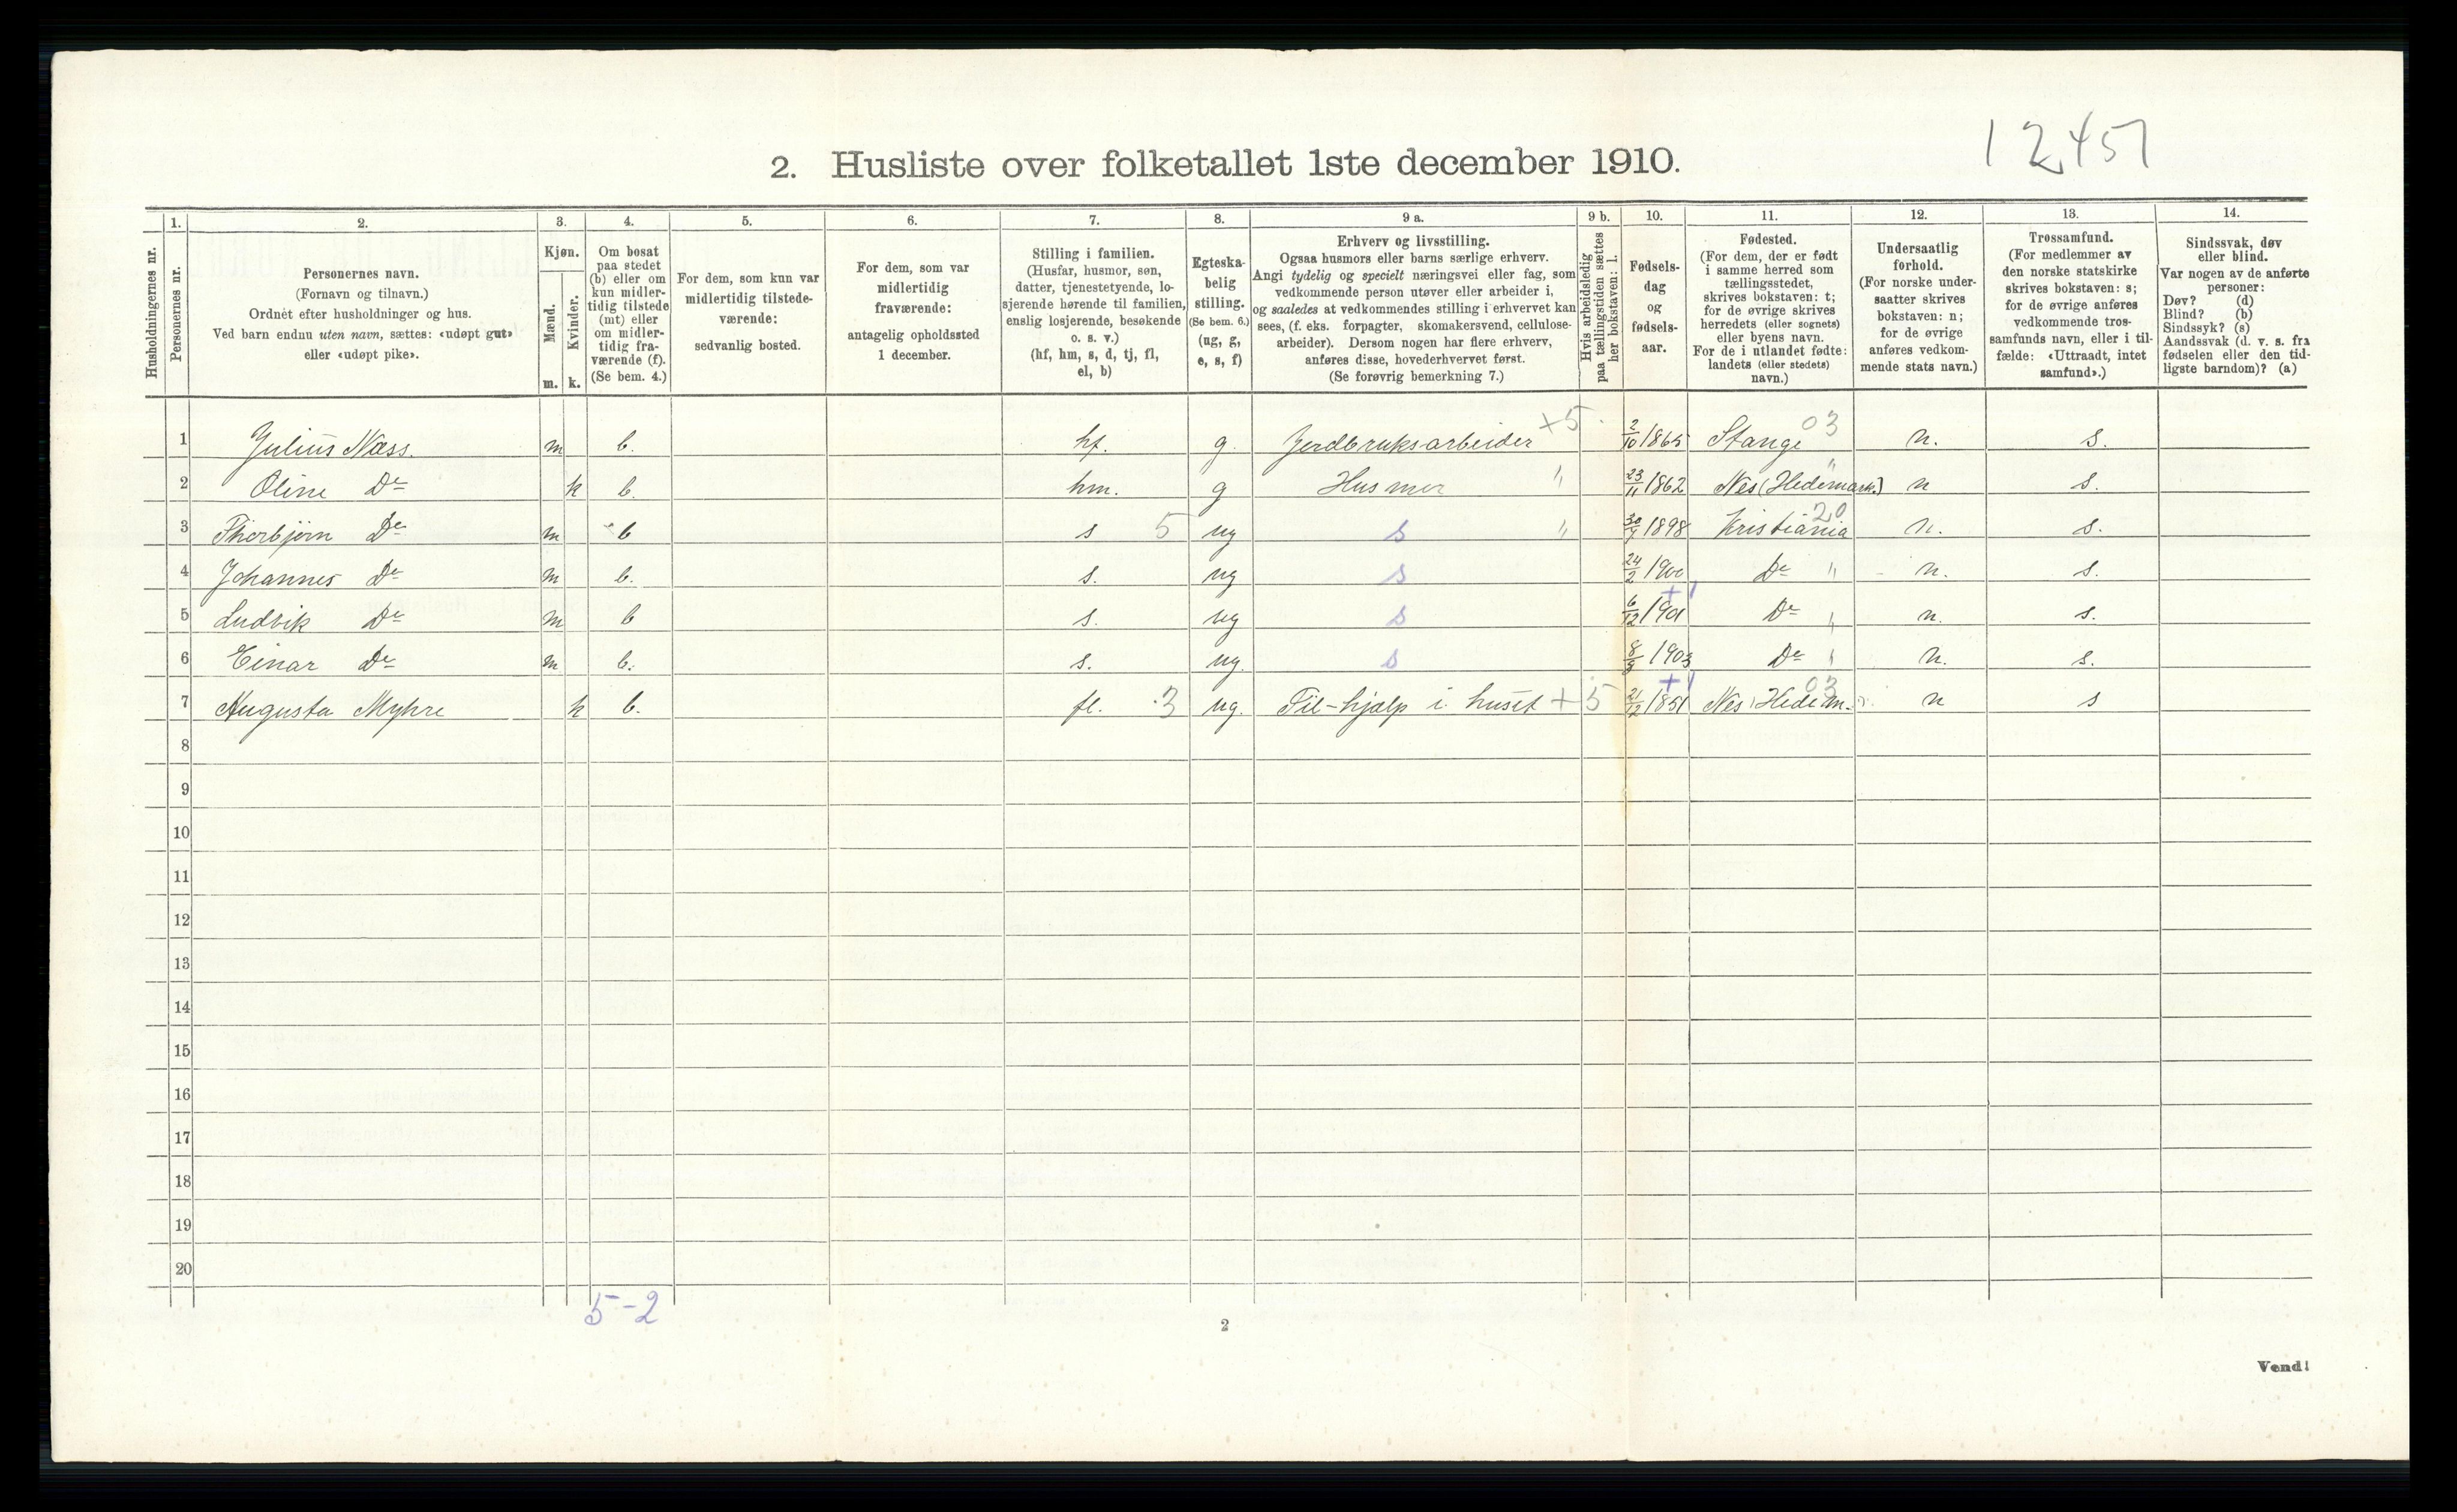 12451
2. Husliste over folketallet 1ste december 1910.
Husholdningernes nr.
1.
Personernes nr.
2.
Personernes navn.
(Fornavn og tilnavn.)
Ordnet efter husholdninger og hus.
Ved barn endnu uten navn, sættes: «udøpt gut»
eller «udøpt pike».
3.
Kjøn.
Mænd.
Kvinder.
m. k.
4.
Om bosat
paa stedet
(b) eller om
kun midler-
tidig tilstede
(mt) eller
om midler-
tidig fra-
værende (f).
(Se bem. 4.)
5.
For dem, som kun var
midlertidig tilstede-
værende:
sedvanlig bosted.
6.
For dem, som var
midlertidig
fraværende:
antagelig opholdssted
1 december.
7.
Stilling i familien.
(Husfar, husmor, søn,
datter, tjenestetyende, lo-
sjerende hørende til familien,
enslig losjerende, besøkende
o. s. v.)
(hf, hm, s, d, tj, fl,
el, b)
8.
Egteska-
belig
stilling.
(Se bem. 6.)
(ug, g,
e, s, f)
9 a.
Erhverv og livsstilling.
Ogsaa husmors eller barns særlige erhverv.
Angi tydelig og specielt næringsvei eller fag, som
vedkommende person utøver eller arbeider i,
og saaledes at vedkommendes stilling i erhvervet kan
sees, (f. eks. forpagter, skomakersvend, cellulose-
arbeider). Dersom nogen har flere erhverv,
anføres disse, hovederhvervet først.
(Se forøvrig bemerkning 7.)
9 b.
Hvis arbeidsledig
paa tællingstiden sættes
her bokstaven: l.
10.
Fødsels-
dag
og
fødsels-
aar.
11.
Fødested.
(For dem, der er født
i samme herred som
tællingsstedet,
skrives bokstaven: t;
for de øvrige skrives
herredets (eller sognets)
eller byens navn.
For de i utlandet fødte:
landets (eller stedets)
navn.)
12.
Undersaatlig
forhold.
(For norske under-
saatter skrives
bokstaven: n;
for de øvrige
anføres vedkom-
mende stats navn.)
13.
Trossamfund.
(For medlemmer av
den norske statskirke
skrives bokstaven: s;
for de øvrige anføres
vedkommende tros-
samfunds navn, eller i til-
fælde: «Uttraadt, intet
samfund».)
14.
Sindssvak, døv
eller blind.
Var nogen av de anførte
personer:
Døv? (d)
Blind? (b)
Sindssyk? (s)
Aandssvak (d. v. s. fra
fødselen eller den tid-
ligste barndom)? (a)
1 Julius Næss. m b. hf. g. Jordbruksarbeider +5 2/10 1865 Stange 03 n. s.
2 Oline Do k b. hm. g Husmor " 23/11 1862 Nes (Hedemark.) " n s.
3 Thorbjørn Do m b s 5 ug s " 30/9 1898 Kristiania 20 n. s.
4 Johannes Do m b. s. ug s 24/2 1900 Do " n. s.
5 Ludvik Do m b s. ug s 6/12 1901 +1 Do " n. s.
6 Einar Do m b. s. ug. s 8/9 1903 Do " n. s.
7 Augusta Myhre k b. fl. 3 ug. Til-hjælp i huset +5 21/12 1851 +1 Nes (Hedem.) 03 n s
8
9
10
11
12
13
14
15
16
17
18
19
20
5-2
2
Vend!